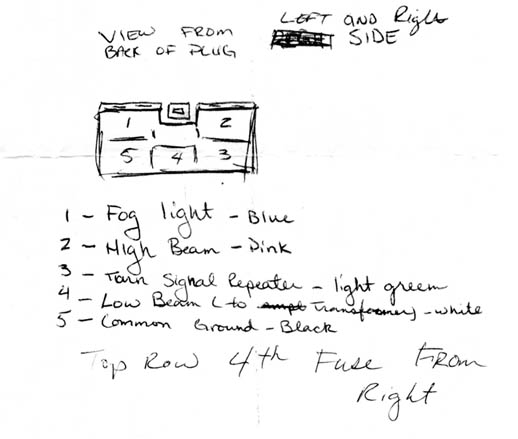 VIEW FROM
BACK OF PLUG
LEFT AND Right
SIDE
1 2
5 4 3
1 - Fog light - Blue
2 - High Beam - Pink
3 - Turn Signal Repeater - light green
4 - Low Beam (to Transformer) - white
5 - Common Ground - Black
Top Row 4th Fuse From
Right